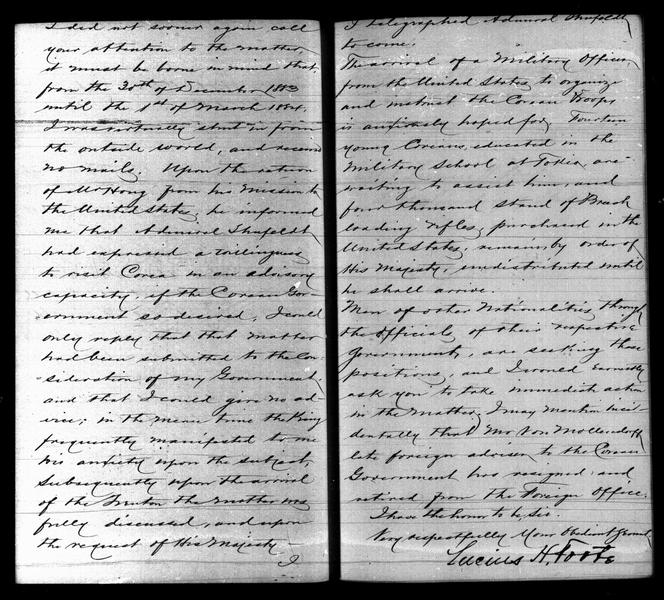 I did not sooner again call
your attention to the matter,
it must be borne in mind that,
from the 20th of December 1883
until the 1st of March 1884,
I was virtually shut in from
the outside world, and received
no mails. Upon the return
of Mr Hong from his Mission to
the United States, he informed
me that Admiral Shufeldt
had expressed a willingness
to visit Corea in an advisory
capacity, if the Corean Gov-
ernment so desired, I could
only reply that that matter
had been submitted to the Con-
-sideration of my Government,
and that I could give no ad-
vice; in the mean time the King
frequently manifested to me
his anxiety upon the subject,
Subsequently upon the arrival
of the Trenton the matter was
fully discussed, and upon
the request of His Majesty—
I
I telegraphed Admiral Shufeldt
to come.
The arrival of a Military Officer,
from the United States, to organize
and instruct the Corean Troops
is anxiously hoped for, Fourteen
young Coreans, educated in the
Military School at Tokio, are
waiting to assist him, and
four thousand stand of Breach
loading rifles, purchased in the
United States, remain, by order of
His Majesty, undistributed until
he shall arrive.
Men of other Nationalities, through
the Officials, of their respective
governments, are seeking these
positions, and I would earnestly
ask you to take immediate action
in the matter. I may mention inci-
dentally that Mr Von Mollendorff
late foreign adviser to the Corean
Government has resigned, and
retired from the Foreign Office.
I have the honor to be, Sir.
Very respectfully Your Obedient Servant,
Lucius H. Foote